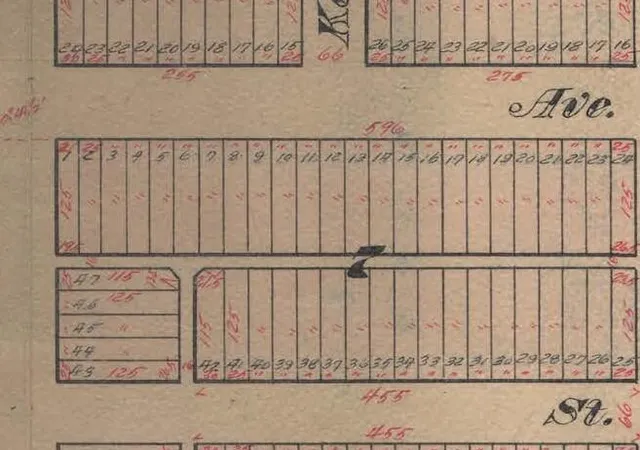 24 23 22 21 20 19 18 17 16 15
26 25 24 23 22 21 20 19 18 17 16
66
255
275
Ave.
596
1 2 3 4 5 6 7 8 9 10 11 12 13 14 15 16 17 18 19 20 21 22 23 24
125 " " " " " " " " " " " " " " " " " " " " " " 125
7
47 115
46 125
45 "
44
43 125
115 125
125
42 41 40 39 38 37 36 35 34 33 32 31 30 29 28 27 26 25
455
St.
66
455